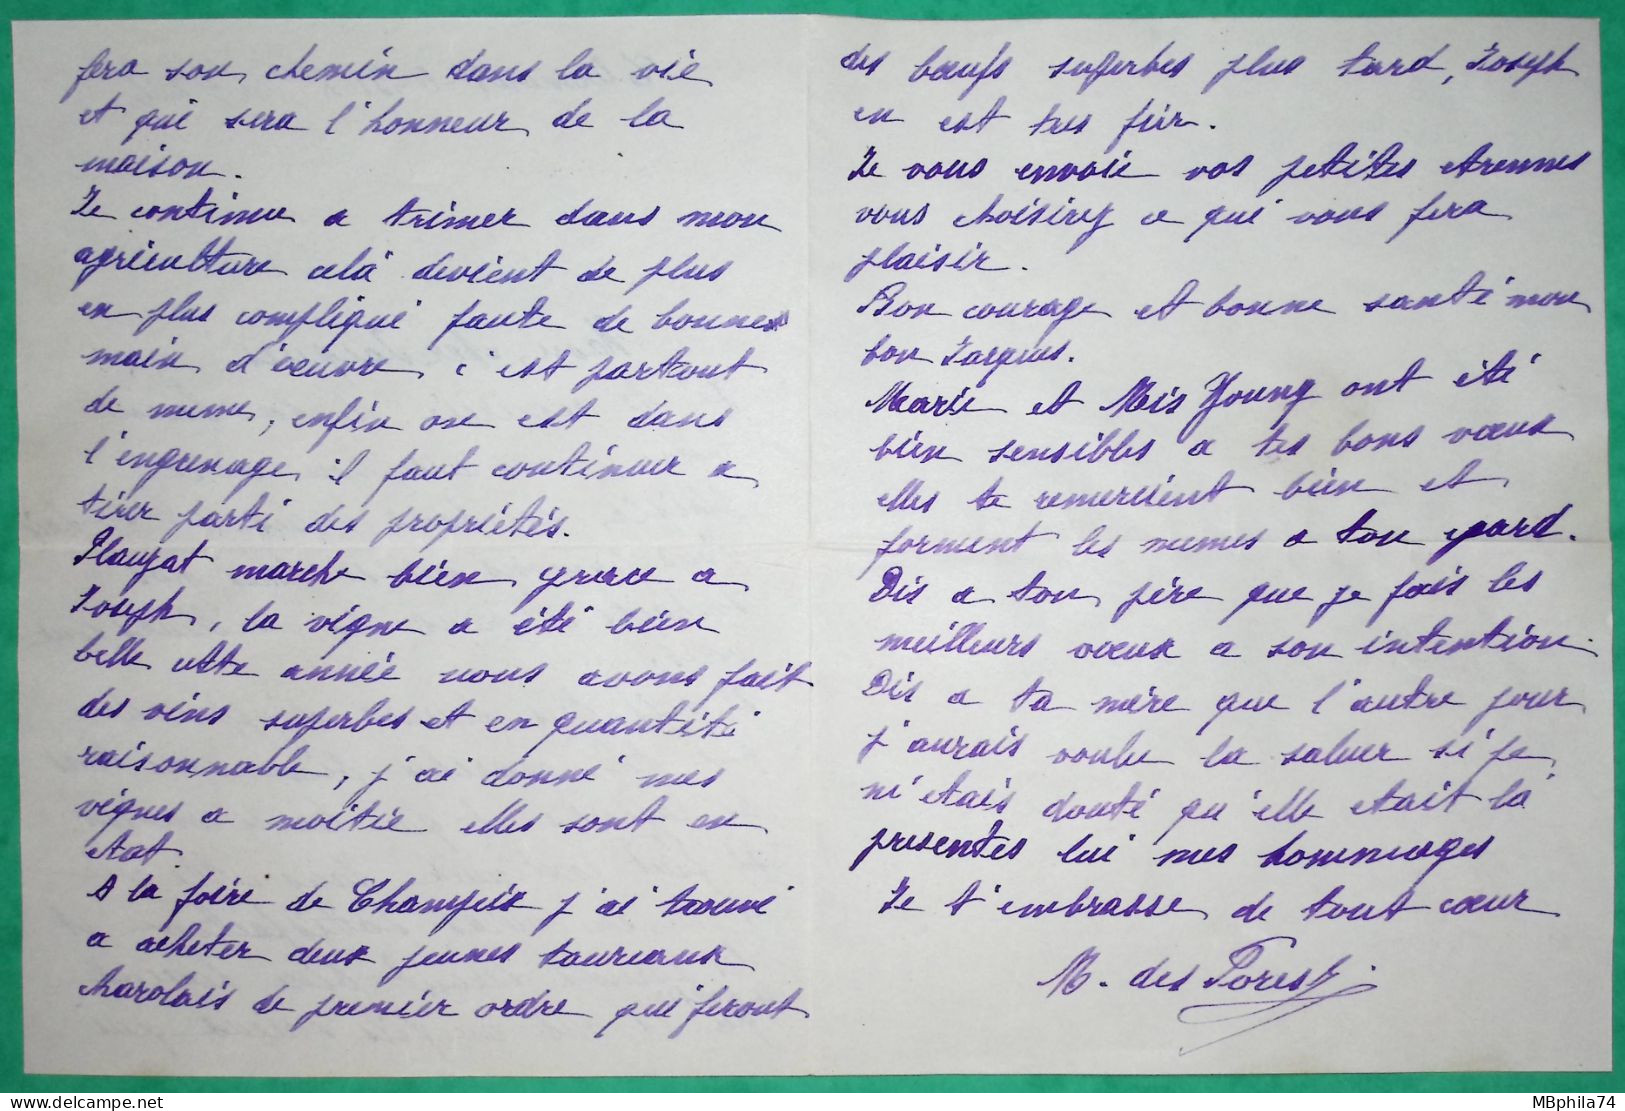 fera son chemin dans la vie
et qui sera l'honneur de la
maison.
Je continue a trimer dans mon
agriculture celà devient de plus
en plus compliqué faute de bonnes
main d'oeuvre, c'est partout
de meme, enfin on est dans
l'engrenage il faut continuer a
tirer parti des propriétés.
Plauzat marche bien grace a
Joseph, la vigne a été bien
belle cette année nous avons fait
des vins superbes et en quantité
raisonnable, j'ai donné mes
vignes a moitie elles sont en
etat.
A la foire de Champeix j'ai trouvé
a acheter deux jeunes taureaux
charolais de premier ordre qui feront
des bœufs superbes plus tard, Joseph
en est tres fier.
Je vous envoie vos petites etrennes
vous choisirez ce qui vous fera
plaisir.
Bon courage et bonne santé mon
bon Jacques.
Marie et Mis Young ont été
bien sensibles a tes bons vœux
elles te remercient bien et
forment les memes a ton egard.
Dis a ton père que je fais les
meilleurs vœux a son intention.
Dis a ta mère que l'autre jour
j'aurais voulu la saluer si je
m'etais douté qu'elle etait là
presentes lui mes hommages
Je t'embrasse de tout cœur
M. des
MBphila74